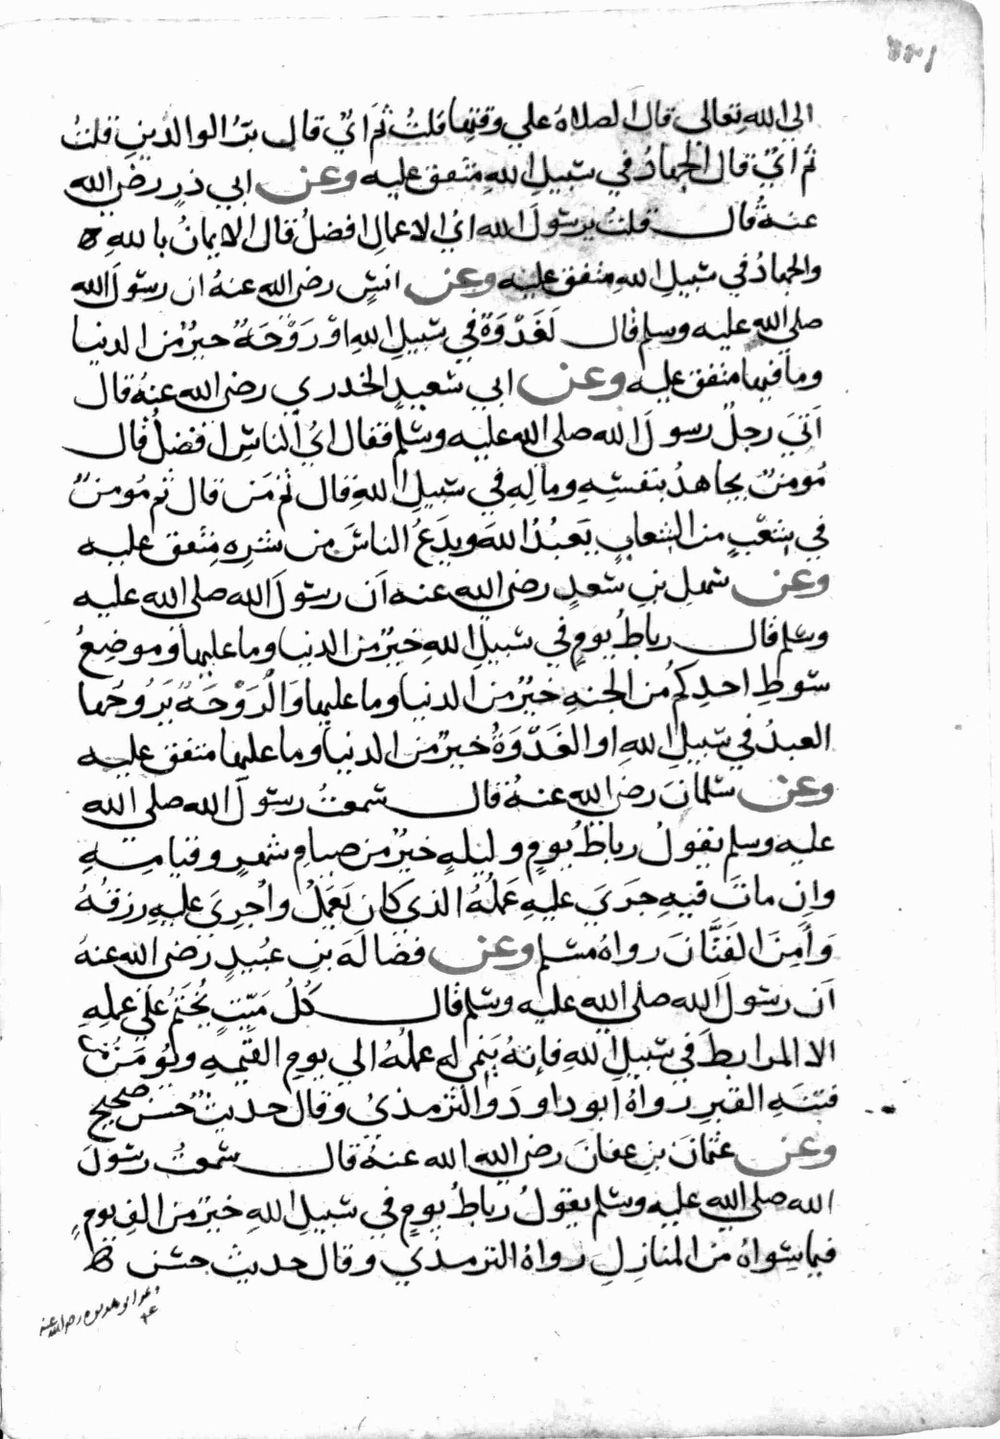 الي الله تعالي قال الصلاة علي وقتها قلت ثم اي قال بر الوالدين قلت
ثم اي قال الجهاد في سبيل الله متفق عليه وعن ابي ذر رضي الله
عنه قال قلت يرسول الله اي الاعمال افضل قال الايمان بالله
والجهاد في سبيل الله متفق عليه وعن انس رضي الله عنه ان رسول الله
صلى الله عليه وسلم قال لغدوة في سبيل الله او روحة خير من الدنيا
وما فيها متفق عليه وعن ابي سعيد الخدري رضي الله عنه قال
اتي رجل رسول الله صلى الله عليه وسلم فقال اي الناس افضل قال
مومن يجاهد بنفسه وماله في سبيل الله قال ثم من قال ثم مومن
في شعب من الشعاب يعبد الله ويدع الناس من شره متفق عليه
وعن سهل بن سعد رضي الله عنه ان رسول الله صلى الله عليه
وسلم قال رباط يوم في سبيل الله خير من الدنيا وما عليها وموضع
سوط احدكم من الجنه خير من الدنيا وما عليها والروحة يروحها
العبد في سبيل الله او الغدوة خير من الدنيا وما عليها متفق عليه
وعن سلمان رضي الله عنه قال سمعت رسول الله صلى الله
عليه وسلم يقول رباط يوم وليله خير من صيام شهر وقيامه
وان مات فيه جري عليه عمله الذي كان يعمل واجري عليه رزقه
وامن الفتان رواه مسلم وعن فضالة بن عبيد رضي الله عنه
ان رسول الله صلى الله عليه وسلم قال كل ميت يختم علي عمله
الا المرابط في سبيل الله فانه ينمي له عمله الي يوم القيمه ويومن
فتنه القبر رواه ابو داود والترمذي وقال حديث حسن صحيح
وعن عثمان بن عفان رضي الله الله عنه قال سمعت رسول
الله صلى الله عليه وسلم يقول رباط يوم في سبيل الله خير من الف يوم
فيما سواه من المنازل رواه الترمذي وقال حديث حسن
وعن ابو هريره رضي الله عنه